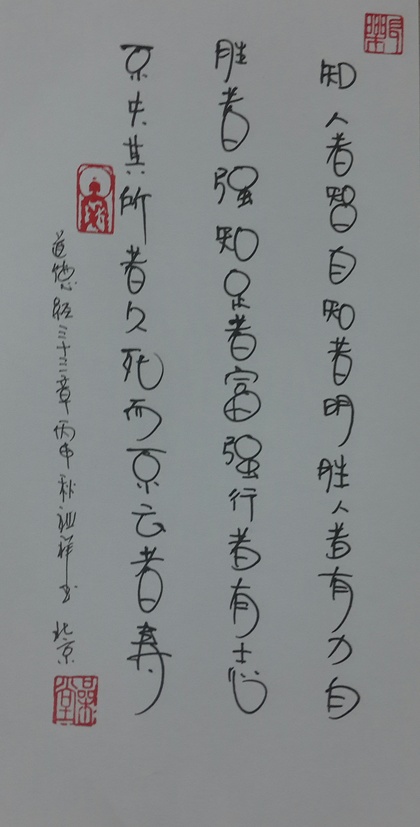 知人者智自知者明胜人者有力自
胜者强知足者富强行者有志
不失其所者久死而不亡者寿
道德经三十三章丙申秋祥书北京